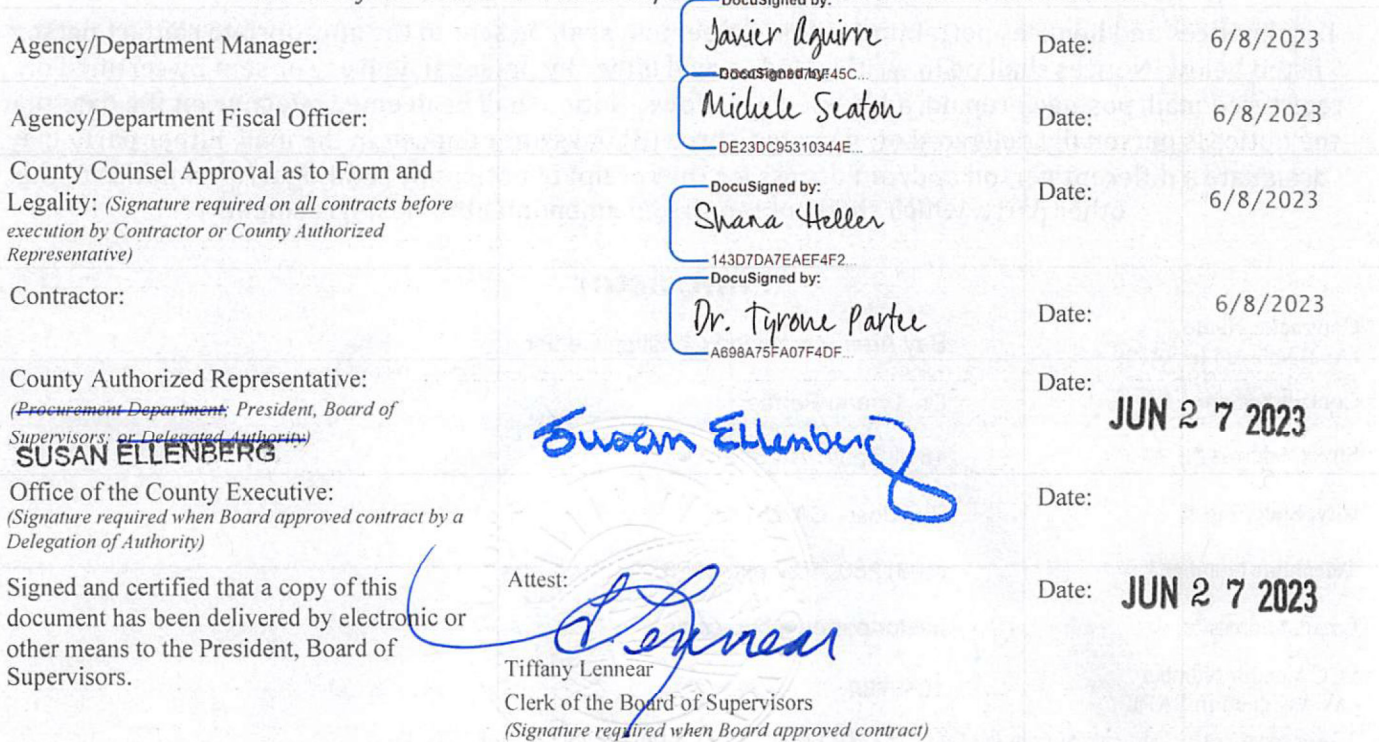 DocuSigned by:
Agency/Department Manager: Javier Aguirre Date: 6/8/2023
DocuSigned by:
Agency/Department Fiscal Officer: Michele Seaton Date: 6/8/2023
DE23DC95310344E...
County Counsel Approval as to Form and
Legality: (Signature required on all contracts before
execution by Contractor or County Authorized
Representative)
DocuSigned by:
Shana Heller
143D7DA7EAEF4F2...
Date: 6/8/2023
DocuSigned by:
Contractor: Dr. Tyrone Partee Date: 6/8/2023
A698A75FA07F4DF...
County Authorized Representative:
(Procurement Department; President, Board of
Supervisors; or Delegated Authority)
SUSAN ELLENBERG
Susan Ellenberg
Date: JUN 27 2023
Office of the County Executive: Date:
(Signature required when Board approved contract by a
Delegation of Authority)
Signed and certified that a copy of this
document has been delivered by electronic or
other means to the President, Board of
Supervisors.
Attest:
Date: JUN 27 2023
Tiffany Lennear
Clerk of the Board of Supervisors
(Signature required when Board approved contract)